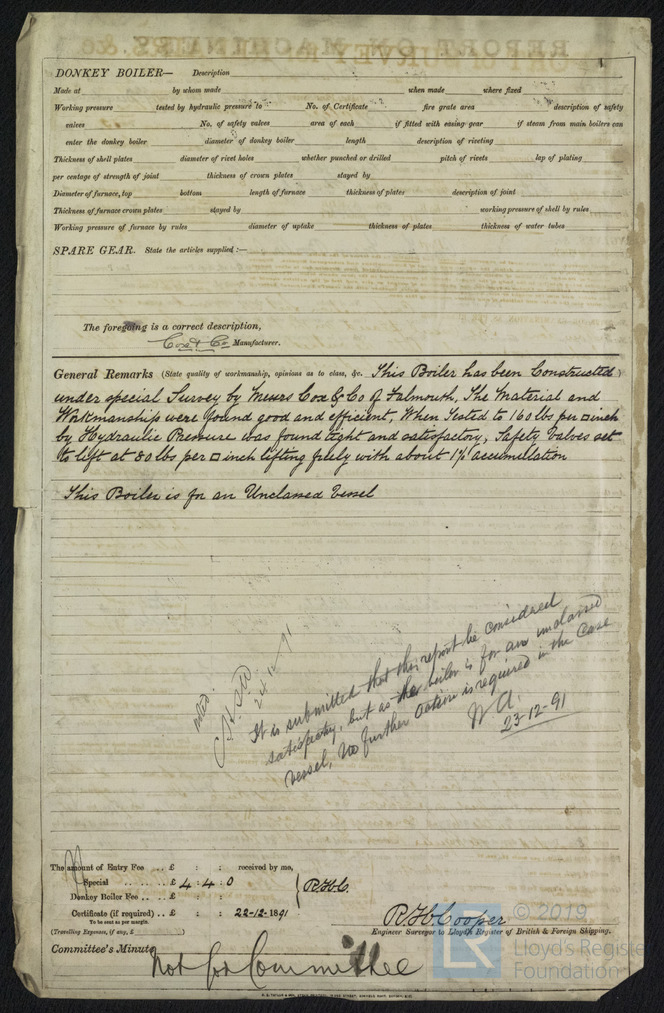 DONKEY BOILER— Description
Made at by whom made when made where fixed
Working pressure tested by hydraulic pressure to No. of Certificate fire grate area description of safety
valves No. of safety valves area of each if fitted with easing-gear if steam from main boilers can
enter the donkey boiler diameter of donkey boiler length description of riveting
Thickness of shell plates diameter of rivet holes whether punched or drilled pitch of rivets lap of plating
per centage of strength of joint thickness of crown plates stayed by
Diameter of furnace, top bottom length of furnace thickness of plates description of joint
Thickness of furnace crown plates stayed by working pressure of shell by rules
Working pressure of furnace by rules diameter of uptake thickness of plates thickness of water tubes
SPARE GEAR. State the articles supplied :—
The foregoing is a correct description,
Cox & Co Manufacturer.
General Remarks (State quality of workmanship, opinions as to class, &c. This Boiler has been Constructed
under special Survey by Messrs Cox & Co of Falmouth, The Material and
Workmanship were found good and efficient, When Tested to 160 lbs per □ inch
by Hydraulic Pressure was found tight and satisfactory, Safety Valves set
to lift at 80 lbs per □ inch lifting freely with about 1% accumulation
This Boiler is for an Unclassed Vessel
noted.
24-12-91
It is submitted that this report be considered
satisfactory, but as the boiler is for an unclassed
vessel, no further action is required in the case
W A.
23-12-91
The amount of Entry Fee .. £ : : received by me,
Special £ 4 : 4 : 0 R.H.C.
Donkey Boiler Fee .. .. £ : :
Certificate (if required) .. £ : : 22-12-1891
To be sent as per margin.
(Travelling Expenses, if any, £ )
R H Cooper
Engineer Surveyor to Lloyd's Register of British & Foreign Shipping.
Committee's Minute
Not for Committee
© 2019
LR
Lloyd's Register
Foundation